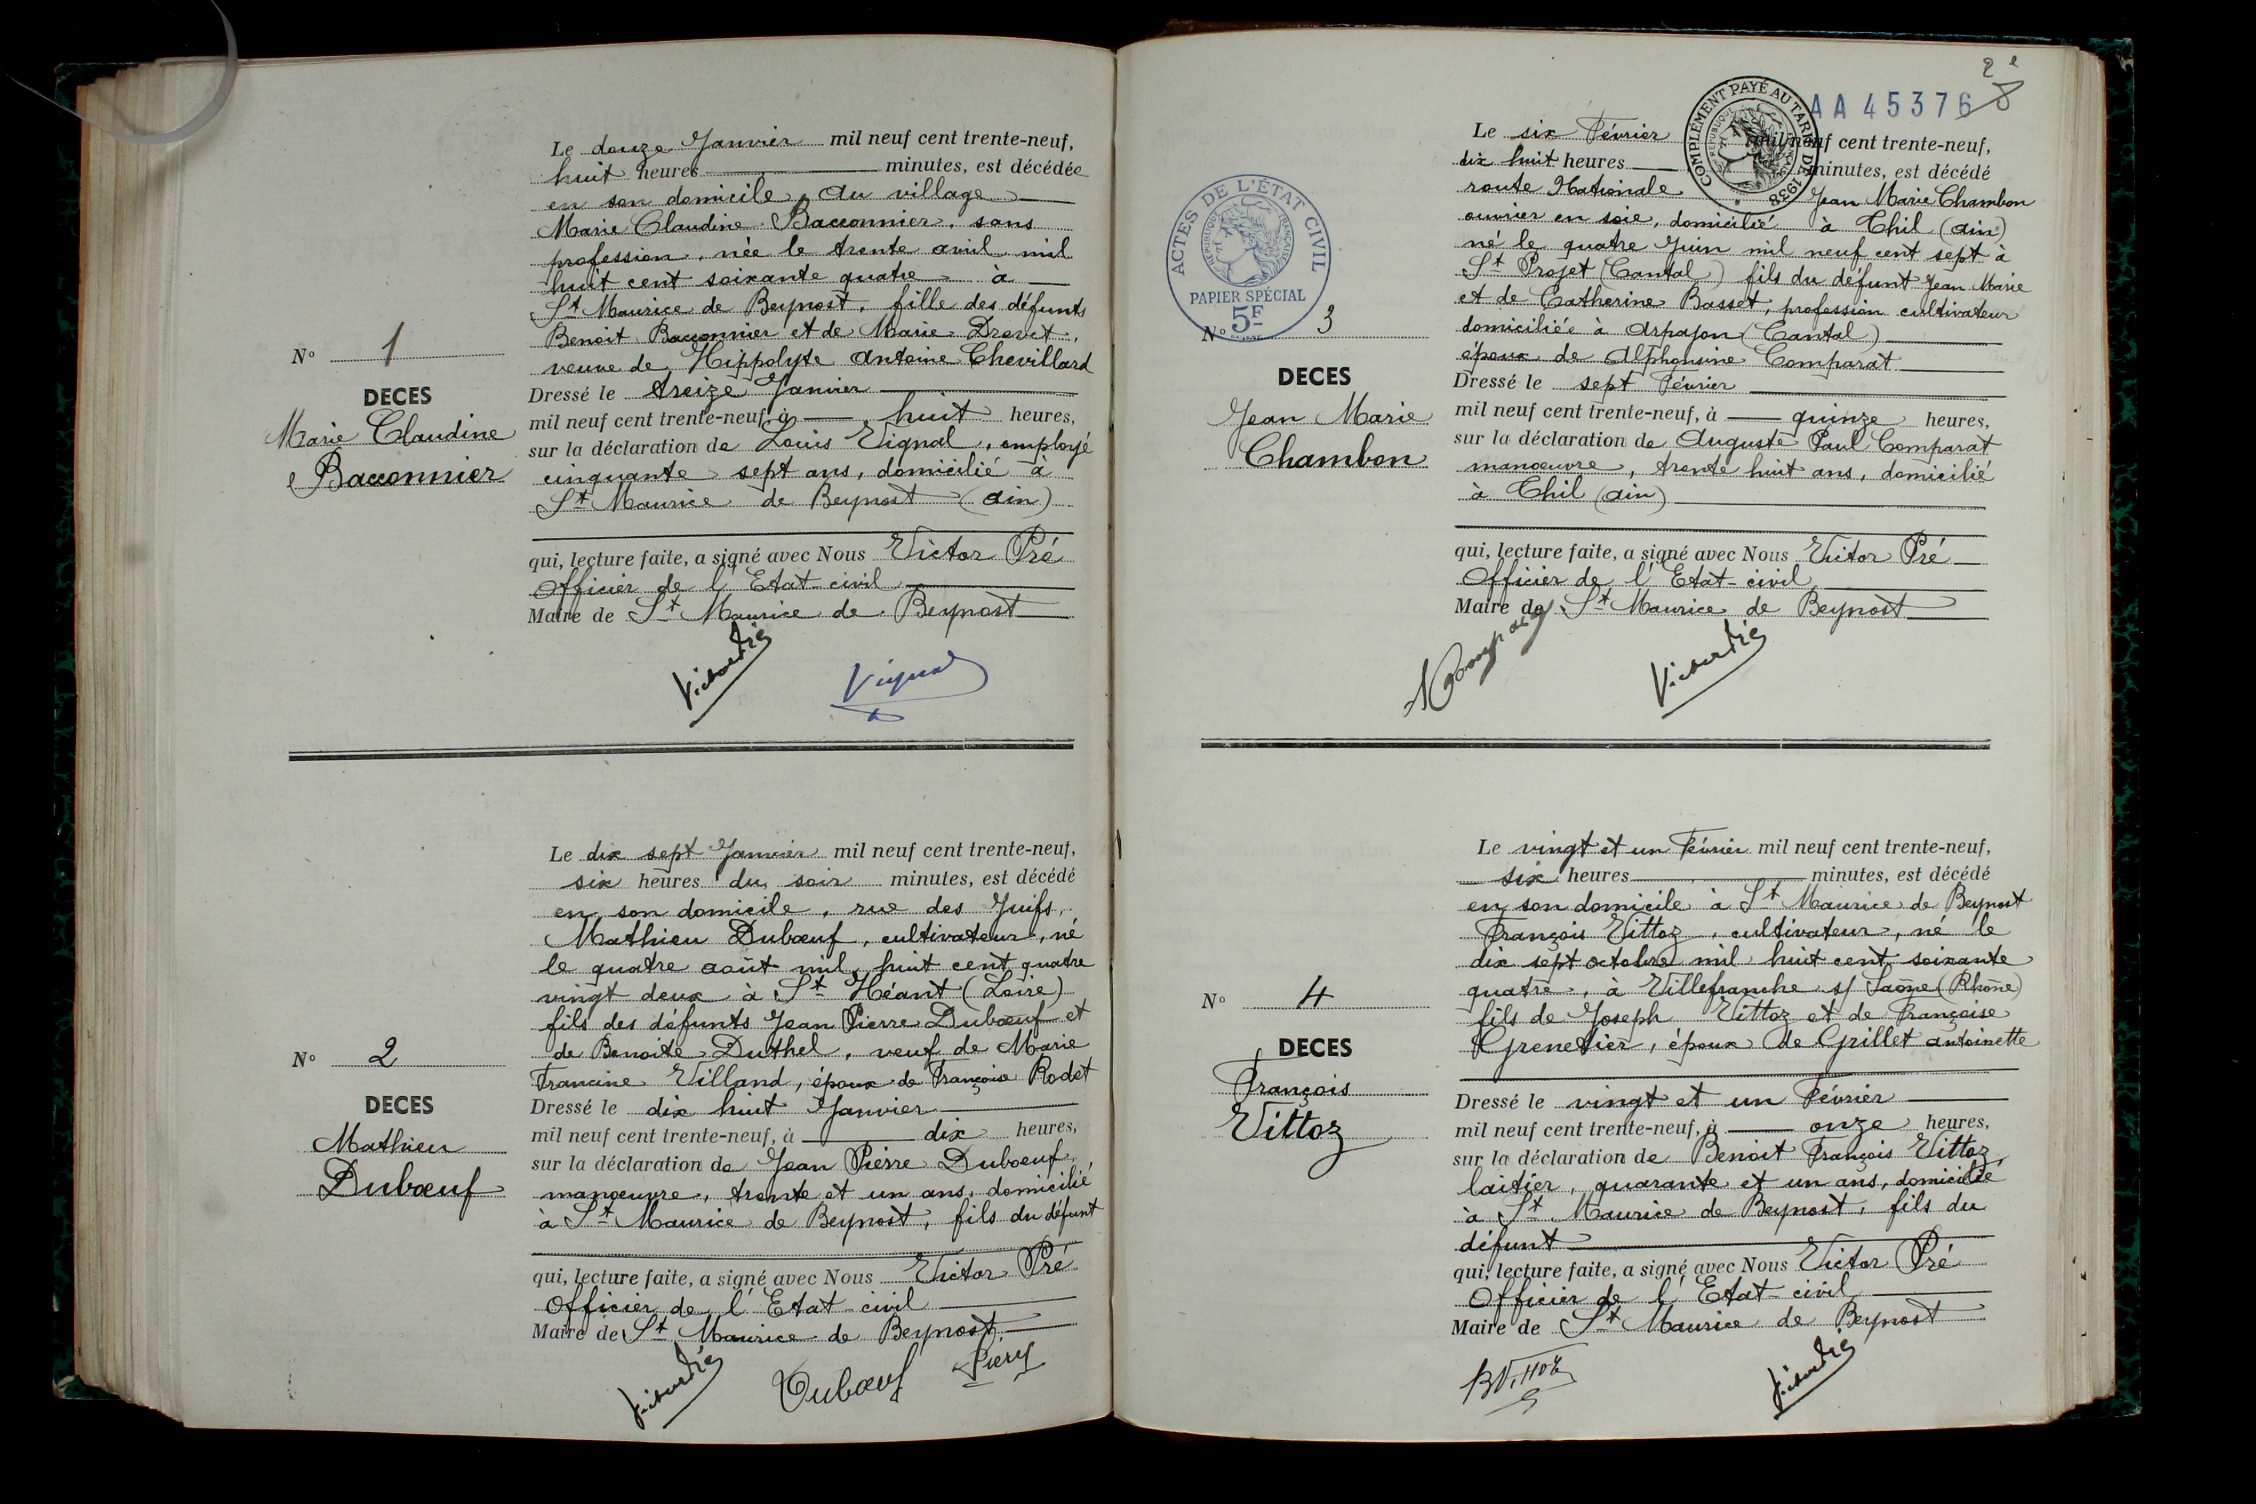 Le douze Janvier mil neuf cent trente-neuf,
huit heures minutes, est décédée
en son domicile, au village
Marie Claudine Bacconnier, sans
profession, née le trente avril mil
huit cent soixante quatre à
St Maurice de Beynost, fille des défunts
Benoit Bacconnier et de Marie Drevet,
veuve de Hippolyte Antoine Chevillard
N° 1
DECES
Marie Claudine
Bacconnier
Dressé le treize Janvier
mil neuf cent trente-neuf, à huit heures,
sur la déclaration de Louis Vignal, employé
cinquante sept ans, domicilié à
St Maurice de Beynost (Ain)
qui, lecture faite, a signé avec Nous Victor Pré
Officier de l'Etat-civil
Maire de St Maurice de Beynost
Victor Pré
Vignal
Le dix sept Janvier mil neuf cent trente-neuf,
six heures du soir minutes, est décédé
en son domicile, rue des Juifs,
Mathieu Dubœuf, cultivateur, né
le quatre août mil huit cent quatre
vingt deux à St Héant (Loire)
fils des défunts Jean Pierre Dubœuf et
de Benoite Duthel, veuf de Marie
Francine Villand, époux de Françoise Rodet
N° 2
DECES
Mathieu
Dubœuf
Dressé le dix huit Janvier
mil neuf cent trente-neuf, à dix heures,
sur la déclaration de Jean Pierre Dubœuf,
manœuvre, trente et un ans, domicilié
à St Maurice de Beynost, fils du défunt
qui, lecture faite, a signé avec Nous Victor Pré
Officier de l'Etat-civil
Maire de St Maurice de Beynost.
Victor Pré
Dubœuf
2e
8
AA 45376
COMPLÉMENT PAYÉ AU TARIF DE 1938
Le six Février mil neuf cent trente-neuf,
dix huit heures minutes, est décédé
route Nationale Jean Marie Chambon
ouvrier en soie, domicilié à Thil (Ain)
né le quatre Juin mil neuf cent sept à
St Projet (Cantal) fils du défunt Jean Marie
et de Catherine Basset, profession cultivateur
domiciliée à Arpajon (Cantal)
époux de Alphonsine Comparat
ACTES DE L'ÉTAT CIVIL
RÉPUBLIQUE FRANÇAISE
PAPIER SPÉCIAL
5F
N° 3
DECES
Jean Marie
Chambon
Dressé le sept Février
mil neuf cent trente-neuf, à quinze heures,
sur la déclaration de Auguste Paul Comparat
manœuvre, trente huit ans, domicilié
à Thil (Ain)
qui, lecture faite, a signé avec Nous Victor Pré
Officier de l'Etat-civil
Maire de St Maurice de Beynost
Victor Pré
Le vingt et un Février mil neuf cent trente-neuf,
six heures minutes, est décédé
en son domicile à St Maurice de Beynost
François Vittoz, cultivateur, né le
dix sept octobre mil huit cent soixante
quatre, à Villefranche s/ Saône (Rhône)
fils de Joseph Vittoz et de Françoise
Grenetier, époux de Grillet Antoinette
N° 4
DECES
François
Vittoz
Dressé le vingt et un Février
mil neuf cent trente-neuf, à onze heures,
sur la déclaration de Benoit François Vittoz
laitier, quarante et un ans, domicilié
à St Maurice de Beynost, fils du
défunt
qui, lecture faite, a signé avec Nous Victor Pré
Officier de l'Etat-civil
Maire de St Maurice de Beynost
B Vittoz
Victor Pré